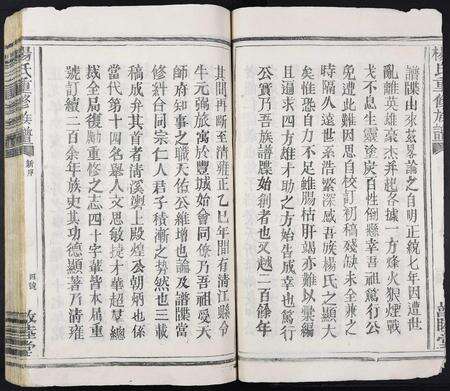 譜牒由來茲畧論之自明正統七年因遭世
亂離英雄豪杰并起各據一方烽火狼烟戰
戈不息生靈塗炭百姓倒懸幸吾祖篤行公
免遭此難回思自校訂初稿殘缺未全兼之
時隔久遠世系浩繁深感吾族楊氏之顯大
矣惟恐自力不足雖腸枯肝竭亦難以彙編
且適來四方雄才助之方始告成幸也篤行
公實乃吾族譜牒始創者也又越二百餘年
其間再斷至清雍正乙巳年間有清江縣令
牛元弼旅寓於豐城始會同僚乃吾祖受天
師府知事之職天佑公維增也論及譜牒當
修許合同宗仁人君子積漸之勢然也三載
稿成弁其首者清溪奧上殿煌公朝炳也係
當代第十四名舉人文思敏捷才華超羣總
裁全局復勵重修之志四十字華皆本局重
號訂續二百余年族史其功德顯著乃清雍
楊氏重修族譜
新序
四號
敦睦堂
楊氏重修族譜
敦睦堂